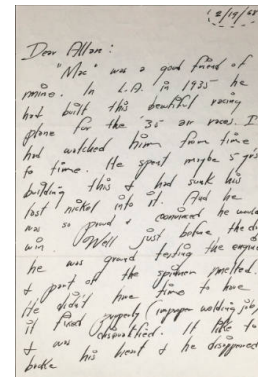 2/19/68
Dear Allan:
"Mac" was a good friend of
mine. In L.A. in 1935 he
had built this beautiful racing
plane for the '35 air races. I
had watched him from time
to time. He spent maybe 5 yrs
building this & had sunk his
last nickel into it. And he
was so proud & convinced he would
win. Well just before the
he was ground testing the engine
& part of the spinner melted.
He didn't have time to have
it fixed properly (improper welding job,
& was disqualified. It like to
his heart & he disappeared
broke